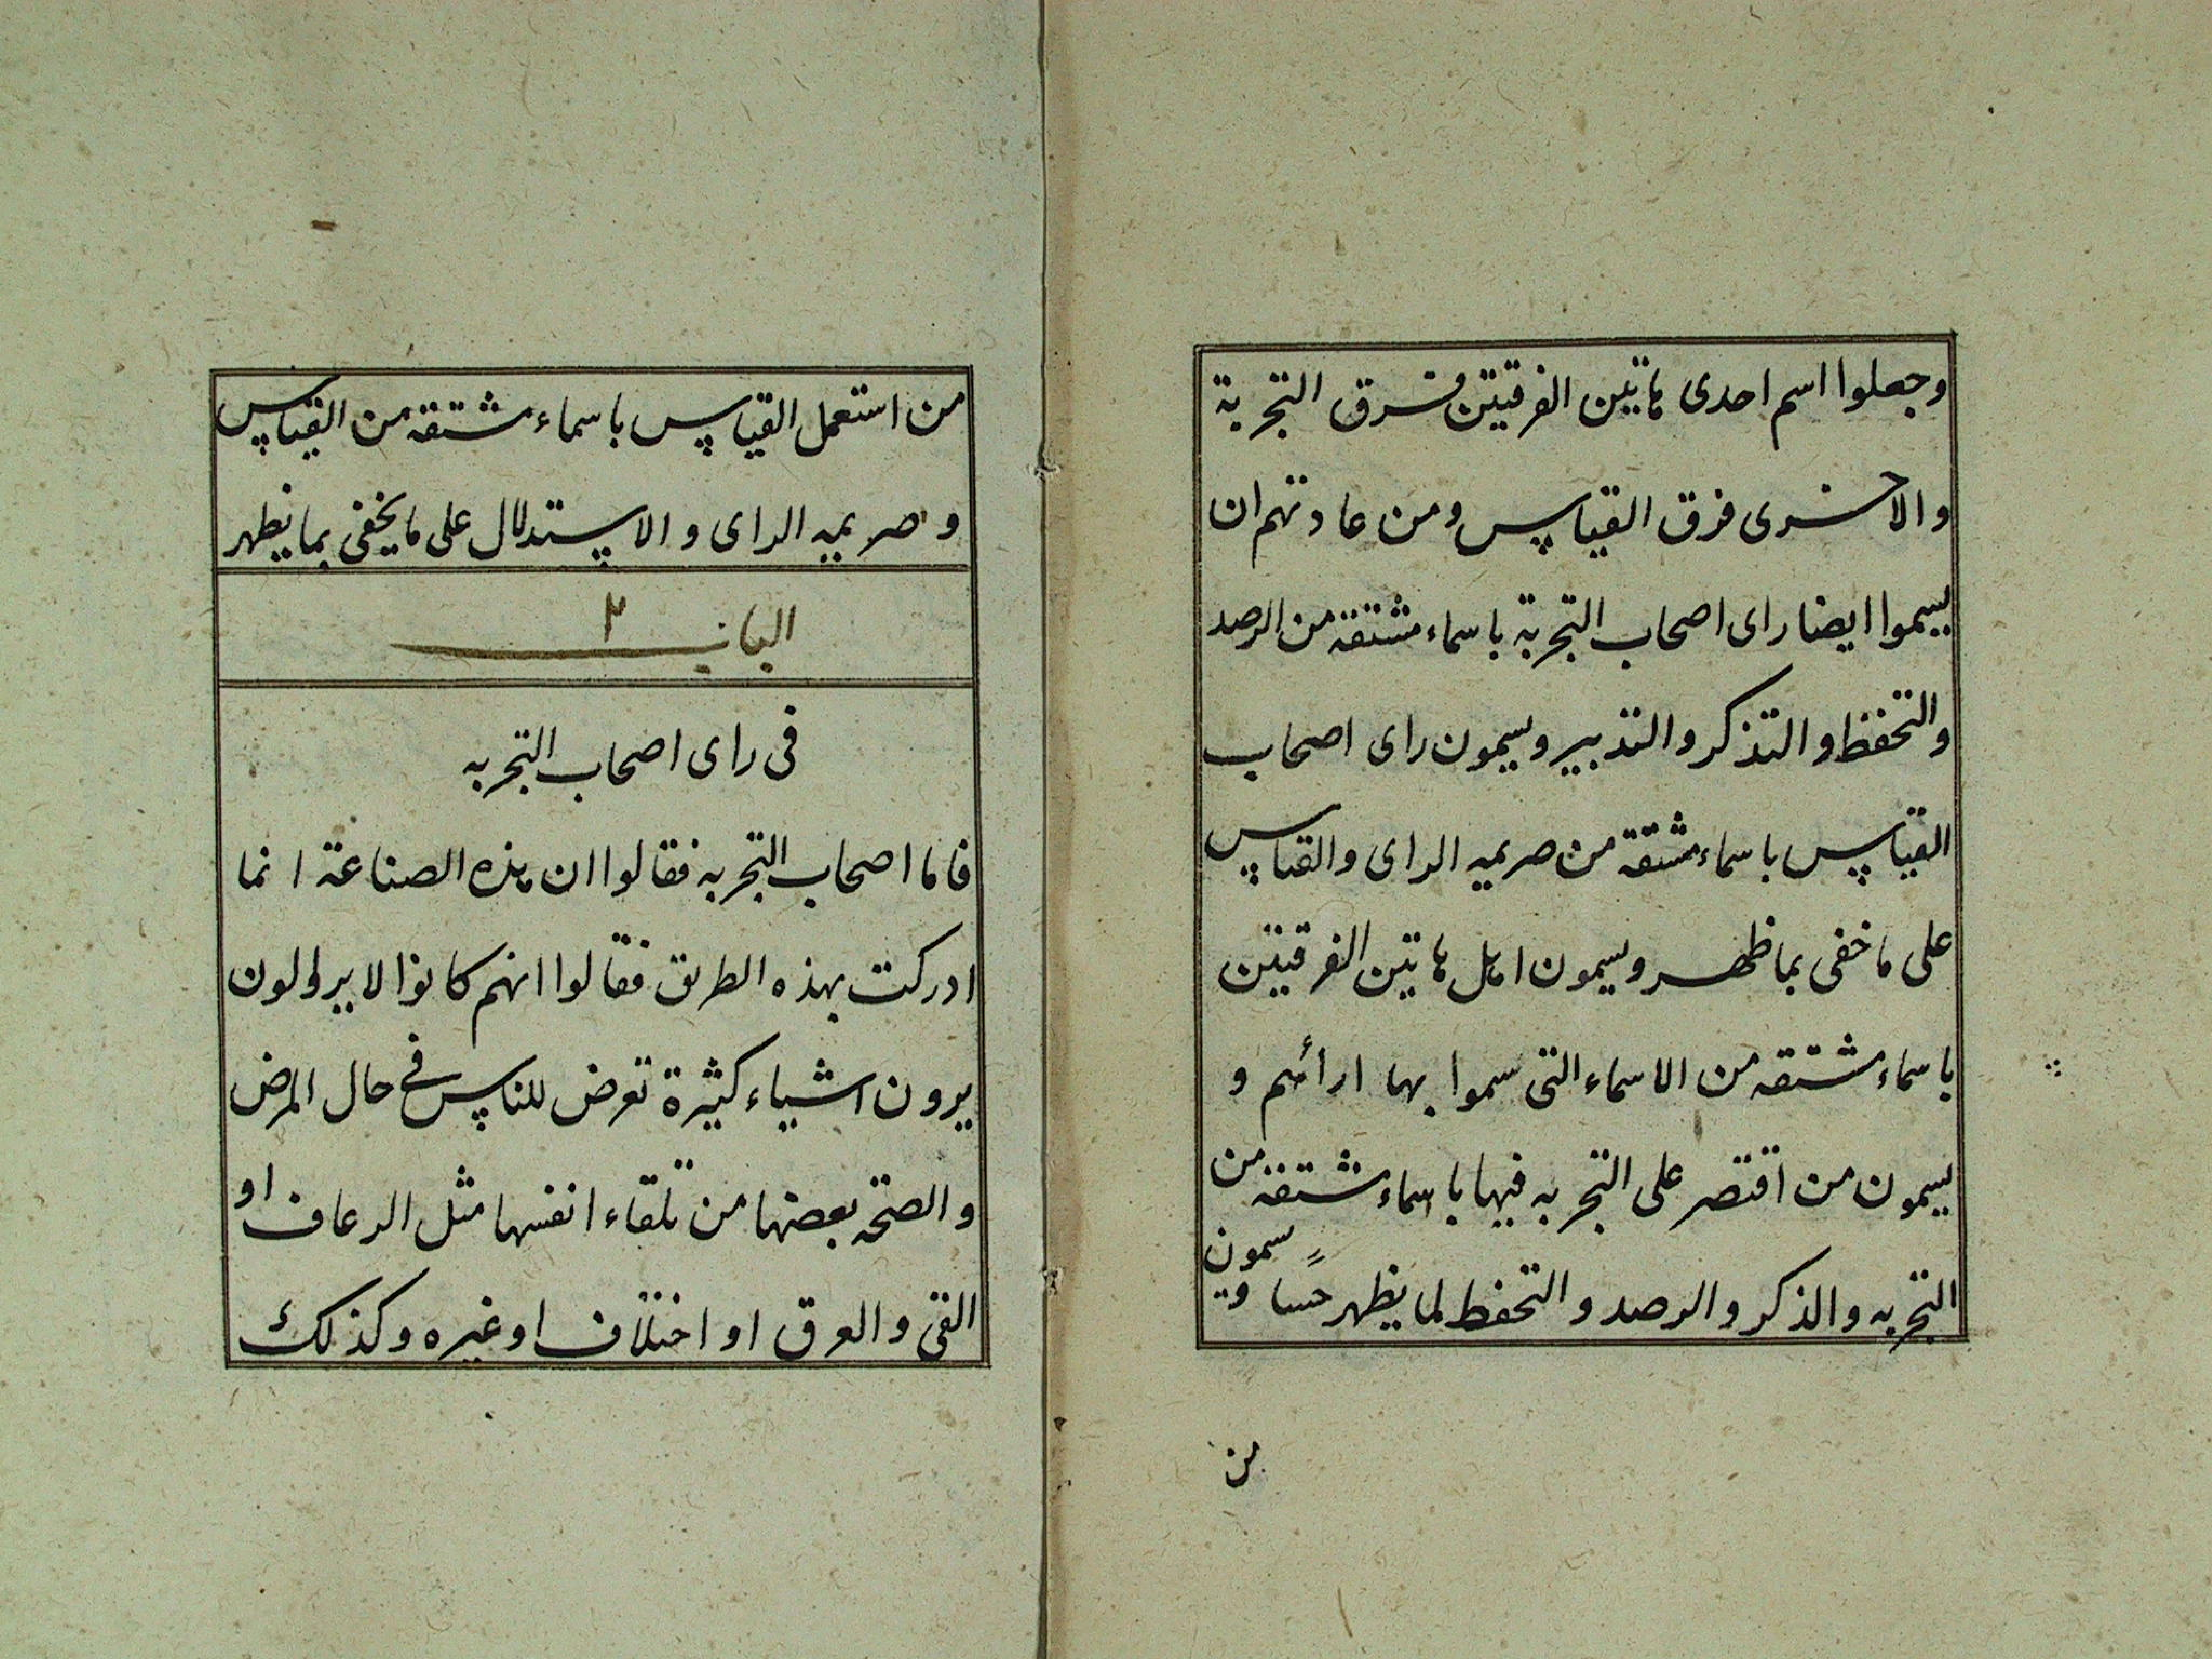 وجعلوا اسم احدى هاتين الفرقتين فرق التجربة
والاخرى فرق القياس ومن عادتهم ان
يسموا ايضا راى اصحاب التجربة باسماء مشتقة من الرصد
والتحفظ والتذكر والتدبير ويسمون راى اصحاب
القياس باسماء مشتقة من صريمه الراى والقياس
على ما خفى بما ظهر ويسمون اهل هاتين الفرقتين
باسماء مشتقه من الاسماء التى سموا بها ارائهم و
يسمون من اقتصر على التجربه فيها باسماء مشتقه من
التجربه والذكر والرصد والتحفظ لما يظهر حسا ويسمون
من
من استعمل القياس باسماء مشتقه من القياس
وصريميه الراى والاستدلال على ما يخفى بما يظهر
الباب ٢
فى راى اصحاب التجربه
فاما اصحاب التجربه فقالوا ان هذه الصناعة انما
ادركت بهذه الطريق فقالوا انهم كانوا لا يزالون
يرون اشياء كثيرة تعرض للناس فى حال المرض
والصحه بعضها من تلقاء انفسها مثل الرعاف او
القى والعرق او اختلاف او غيره وكذلك